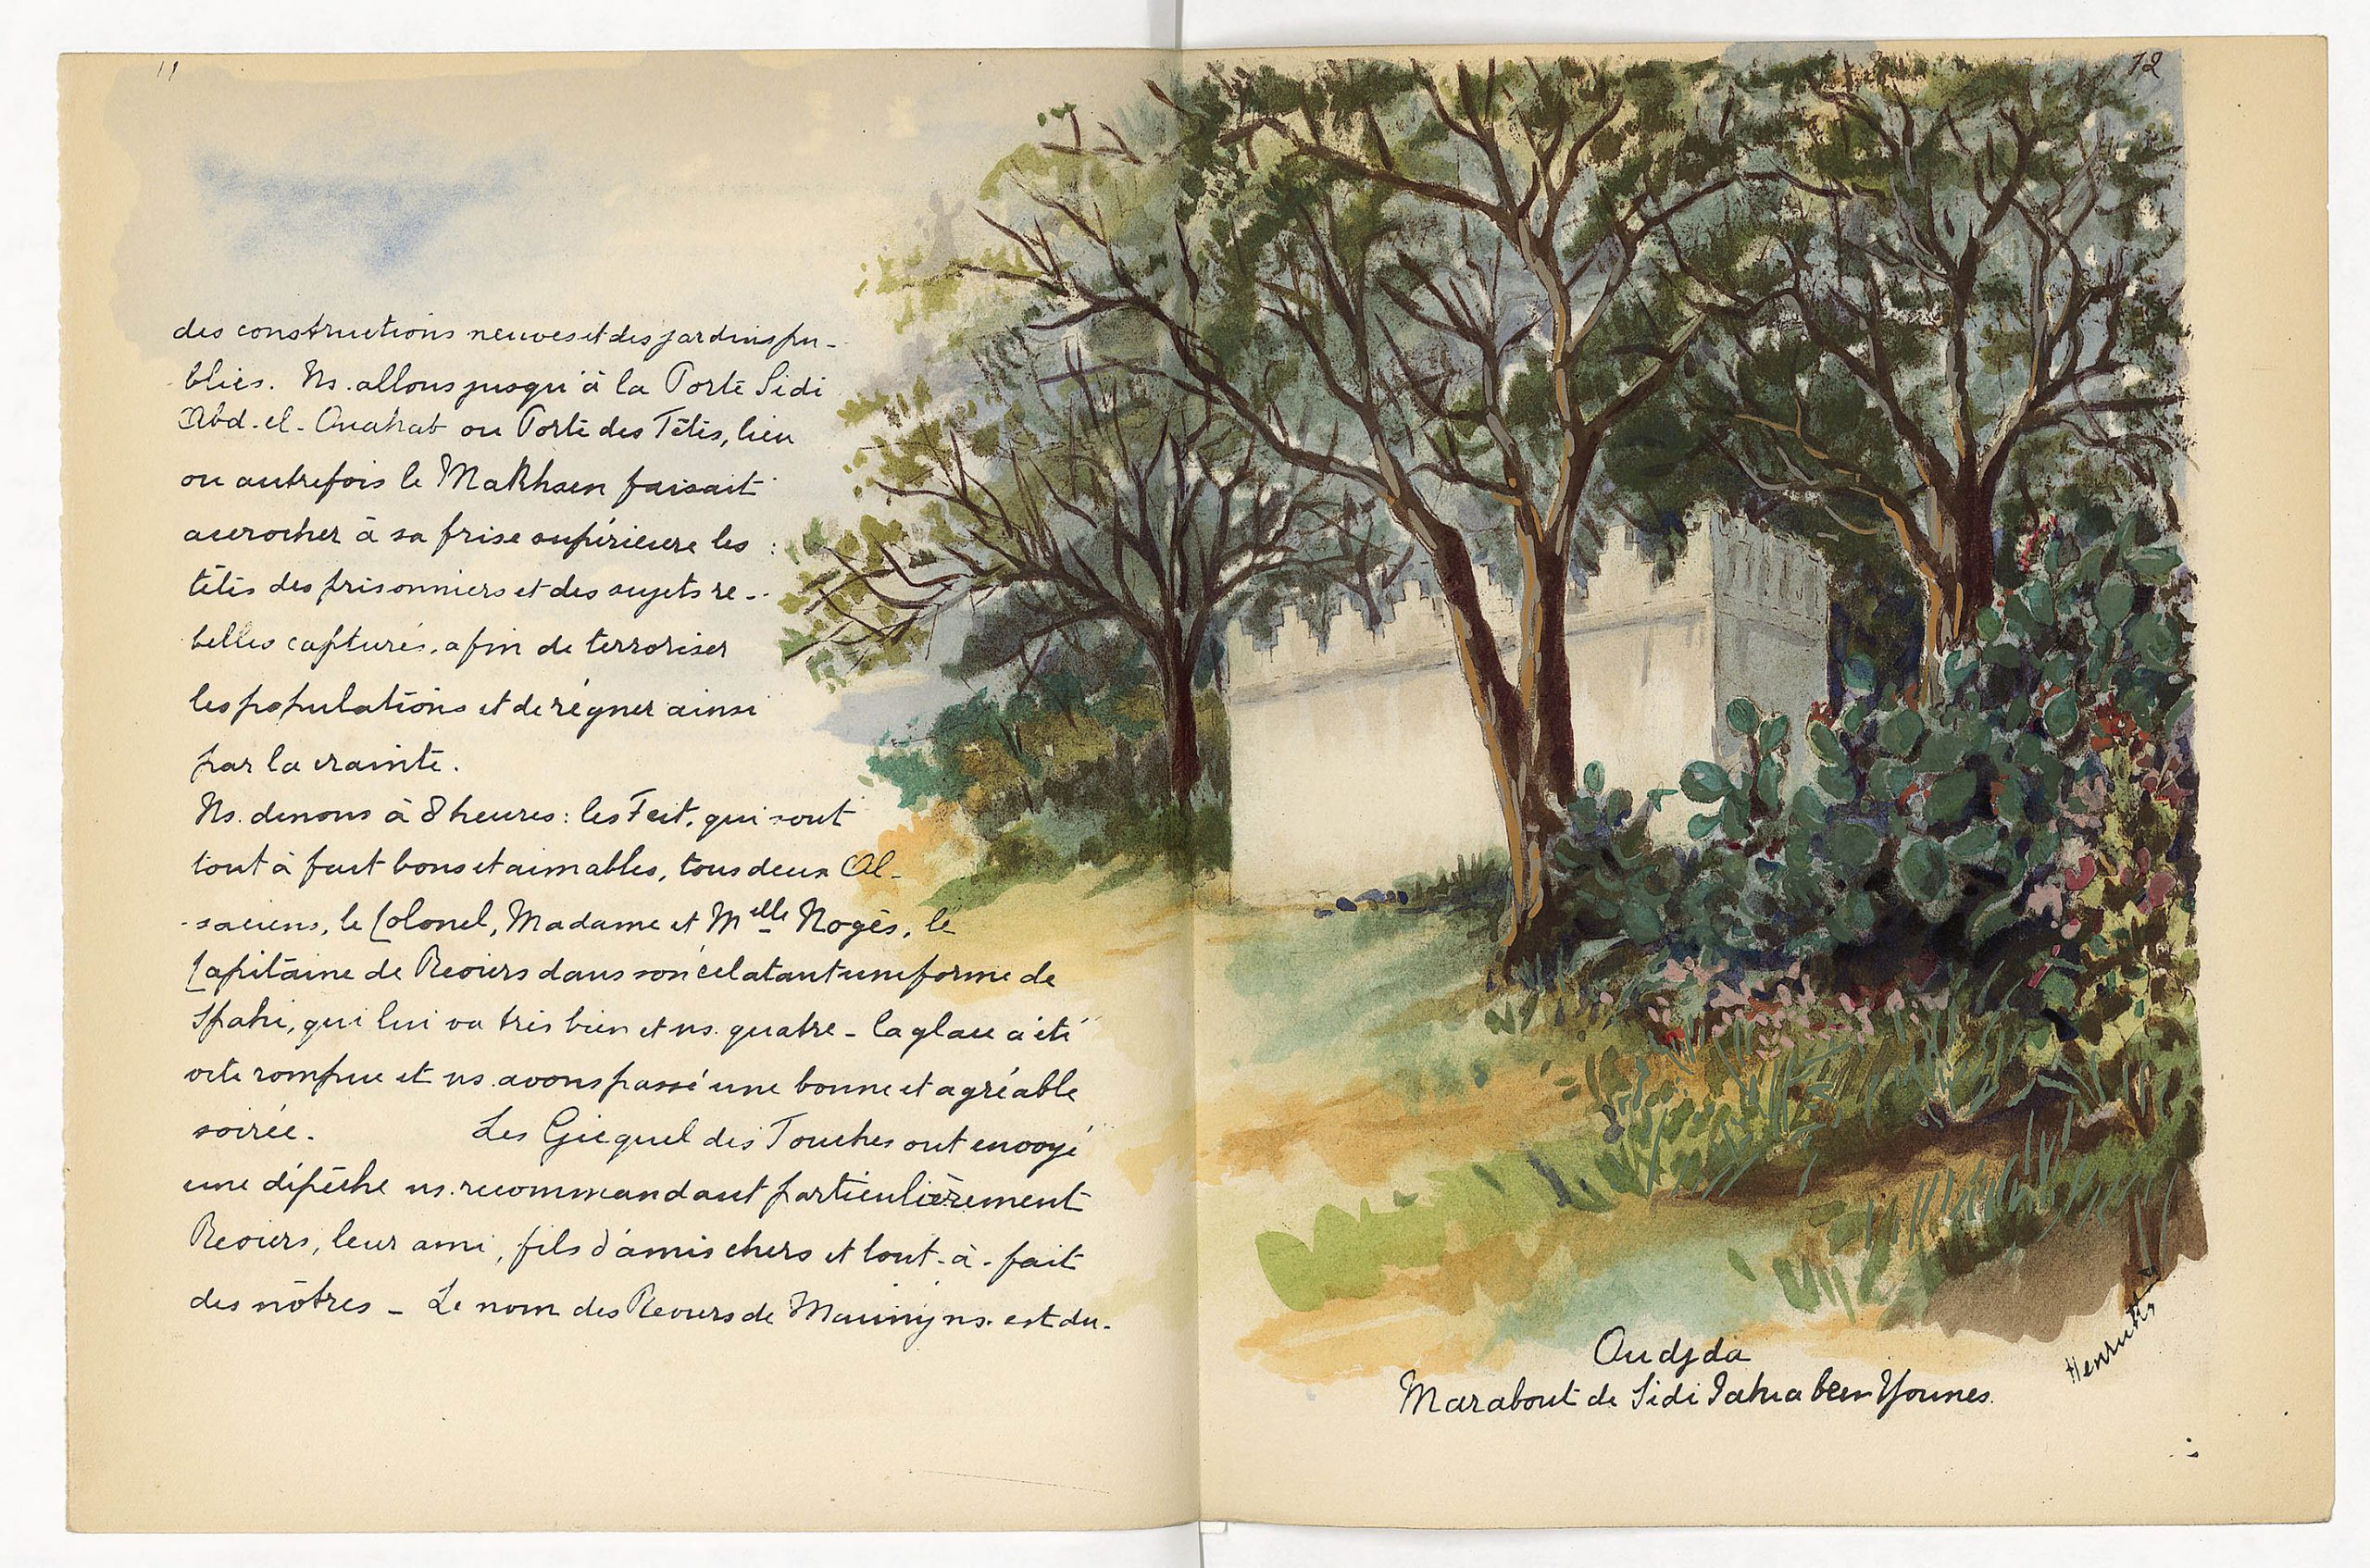 11
des constructions neuves et des jardins pu-
blics. Ns. allons jusqu'à la Porte Sidi
Abd-el-Ouahab ou Porte des Têtes, lieu
ou autrefois le Makhsen faisait
accrocher à sa frise supérieure les
têtes des prisonniers et des sujets re-
belles capturés, afin de terroriser
les populations et de régner ainsi
par la crainte.
Ns. dinons à 8 heures : les Feit, qui sont
tout à fait bons et aimables, tous deux Al-
saciens, le Colonel, Madame et Melle Nogès, le
Capitaine de Reviers dans son éclatant uniforme de
Spahi, qui lui va très bien et ns. quatre - la glace a été
vite rompue et ns. avons passé une bonne et agréable
soirée. Les Gicquel des Touches ont envoyé
une dépêche ns. recommandant particulièrement
Reviers, leur ami, fils d'amis chers et tout-à-fait
des nôtres - Le nom des Reviers de Mauny ns. est du-
12
Oudjda
Marabout de Sidi Iahia ben Younes.